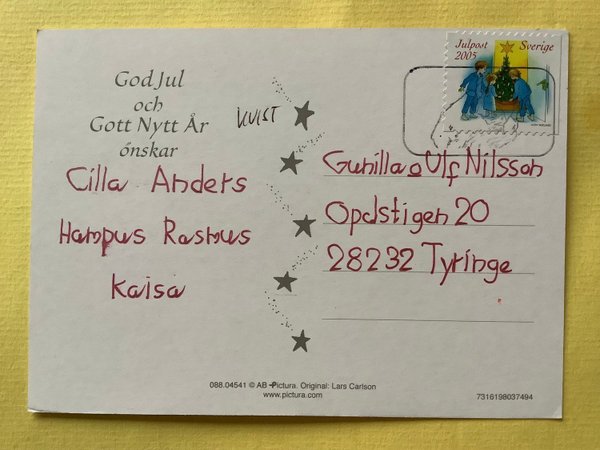 God Jul
och
Gott Nytt År
önskar
KVIST
Cilla Anders
Hampus Rasmus
Kaisa
Julpost Sverige
2005
Gunilla o Ulf Nilsson
Opalstigen 20
28232 Tyringe
088.04541 © AB Pictura. Original: Lars Carlson
www.pictura.com
7316198037494